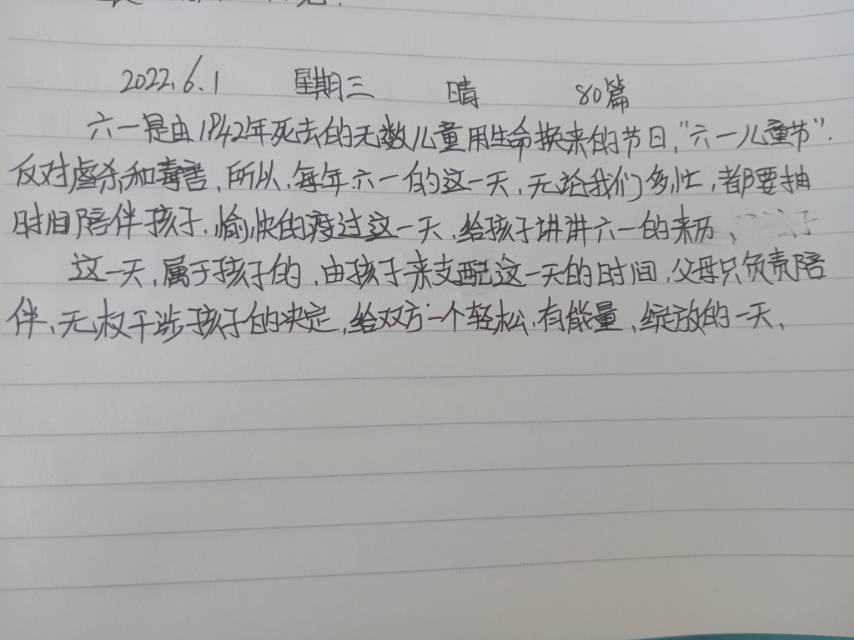 2022.6.1 星期三 晴 80篇
六一是由1942年死去的无数儿童用生命换来的节日,“六一儿童节”.
反对虐杀和毒害,所以,每年六一的这一天,无论我们多忙,都要抽
时间陪伴孩子.愉快的渡过这一天.给孩子讲讲六一的来历、
这一天,属于孩子的,由孩子来支配这一天的时间,父母只负责陪
伴、无权干涉孩子的决定,给双方一个轻松,有能量,绽放的一天、